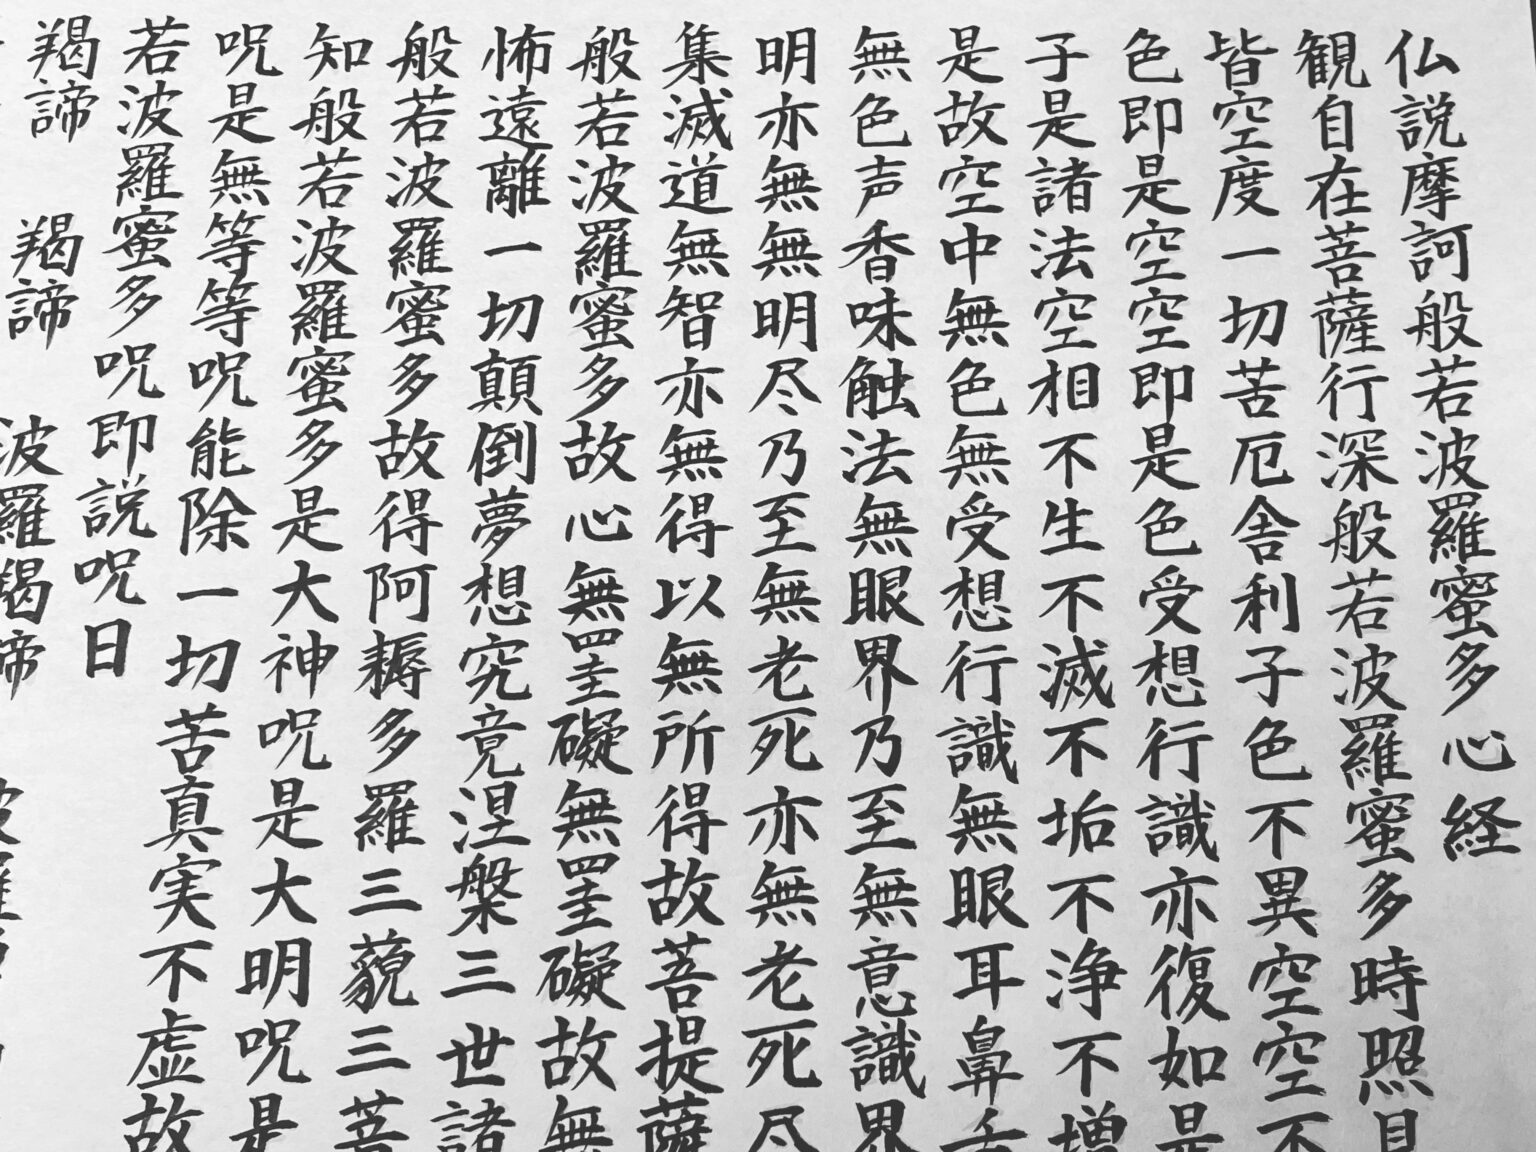 仏説摩訶般若波羅蜜多心経
観自在菩薩行深般若波羅蜜多時照見
皆空度一切苦厄舎利子色不異空空不
色即是空空即是色受想行識亦復如是
子是諸法空相不生不滅不垢不浄不増
是故空中無色無受想行識無眼耳鼻舌
無色声香味触法無眼界乃至無意識界
明亦無無明尽乃至無老死亦無老死尽
集滅道無智亦無得以無所得故菩提薩
般若波羅蜜多故心無罣礙無罣礙故無
怖遠離一切顛倒夢想究竟涅槃三世諸
般若波羅蜜多故得阿耨多羅三藐三菩
知般若波羅蜜多是大神呪是大明呪是
呪是無等等呪能除一切苦真実不虚故
若波羅蜜多呪即説呪日
羯諦 羯諦 波羅羯諦